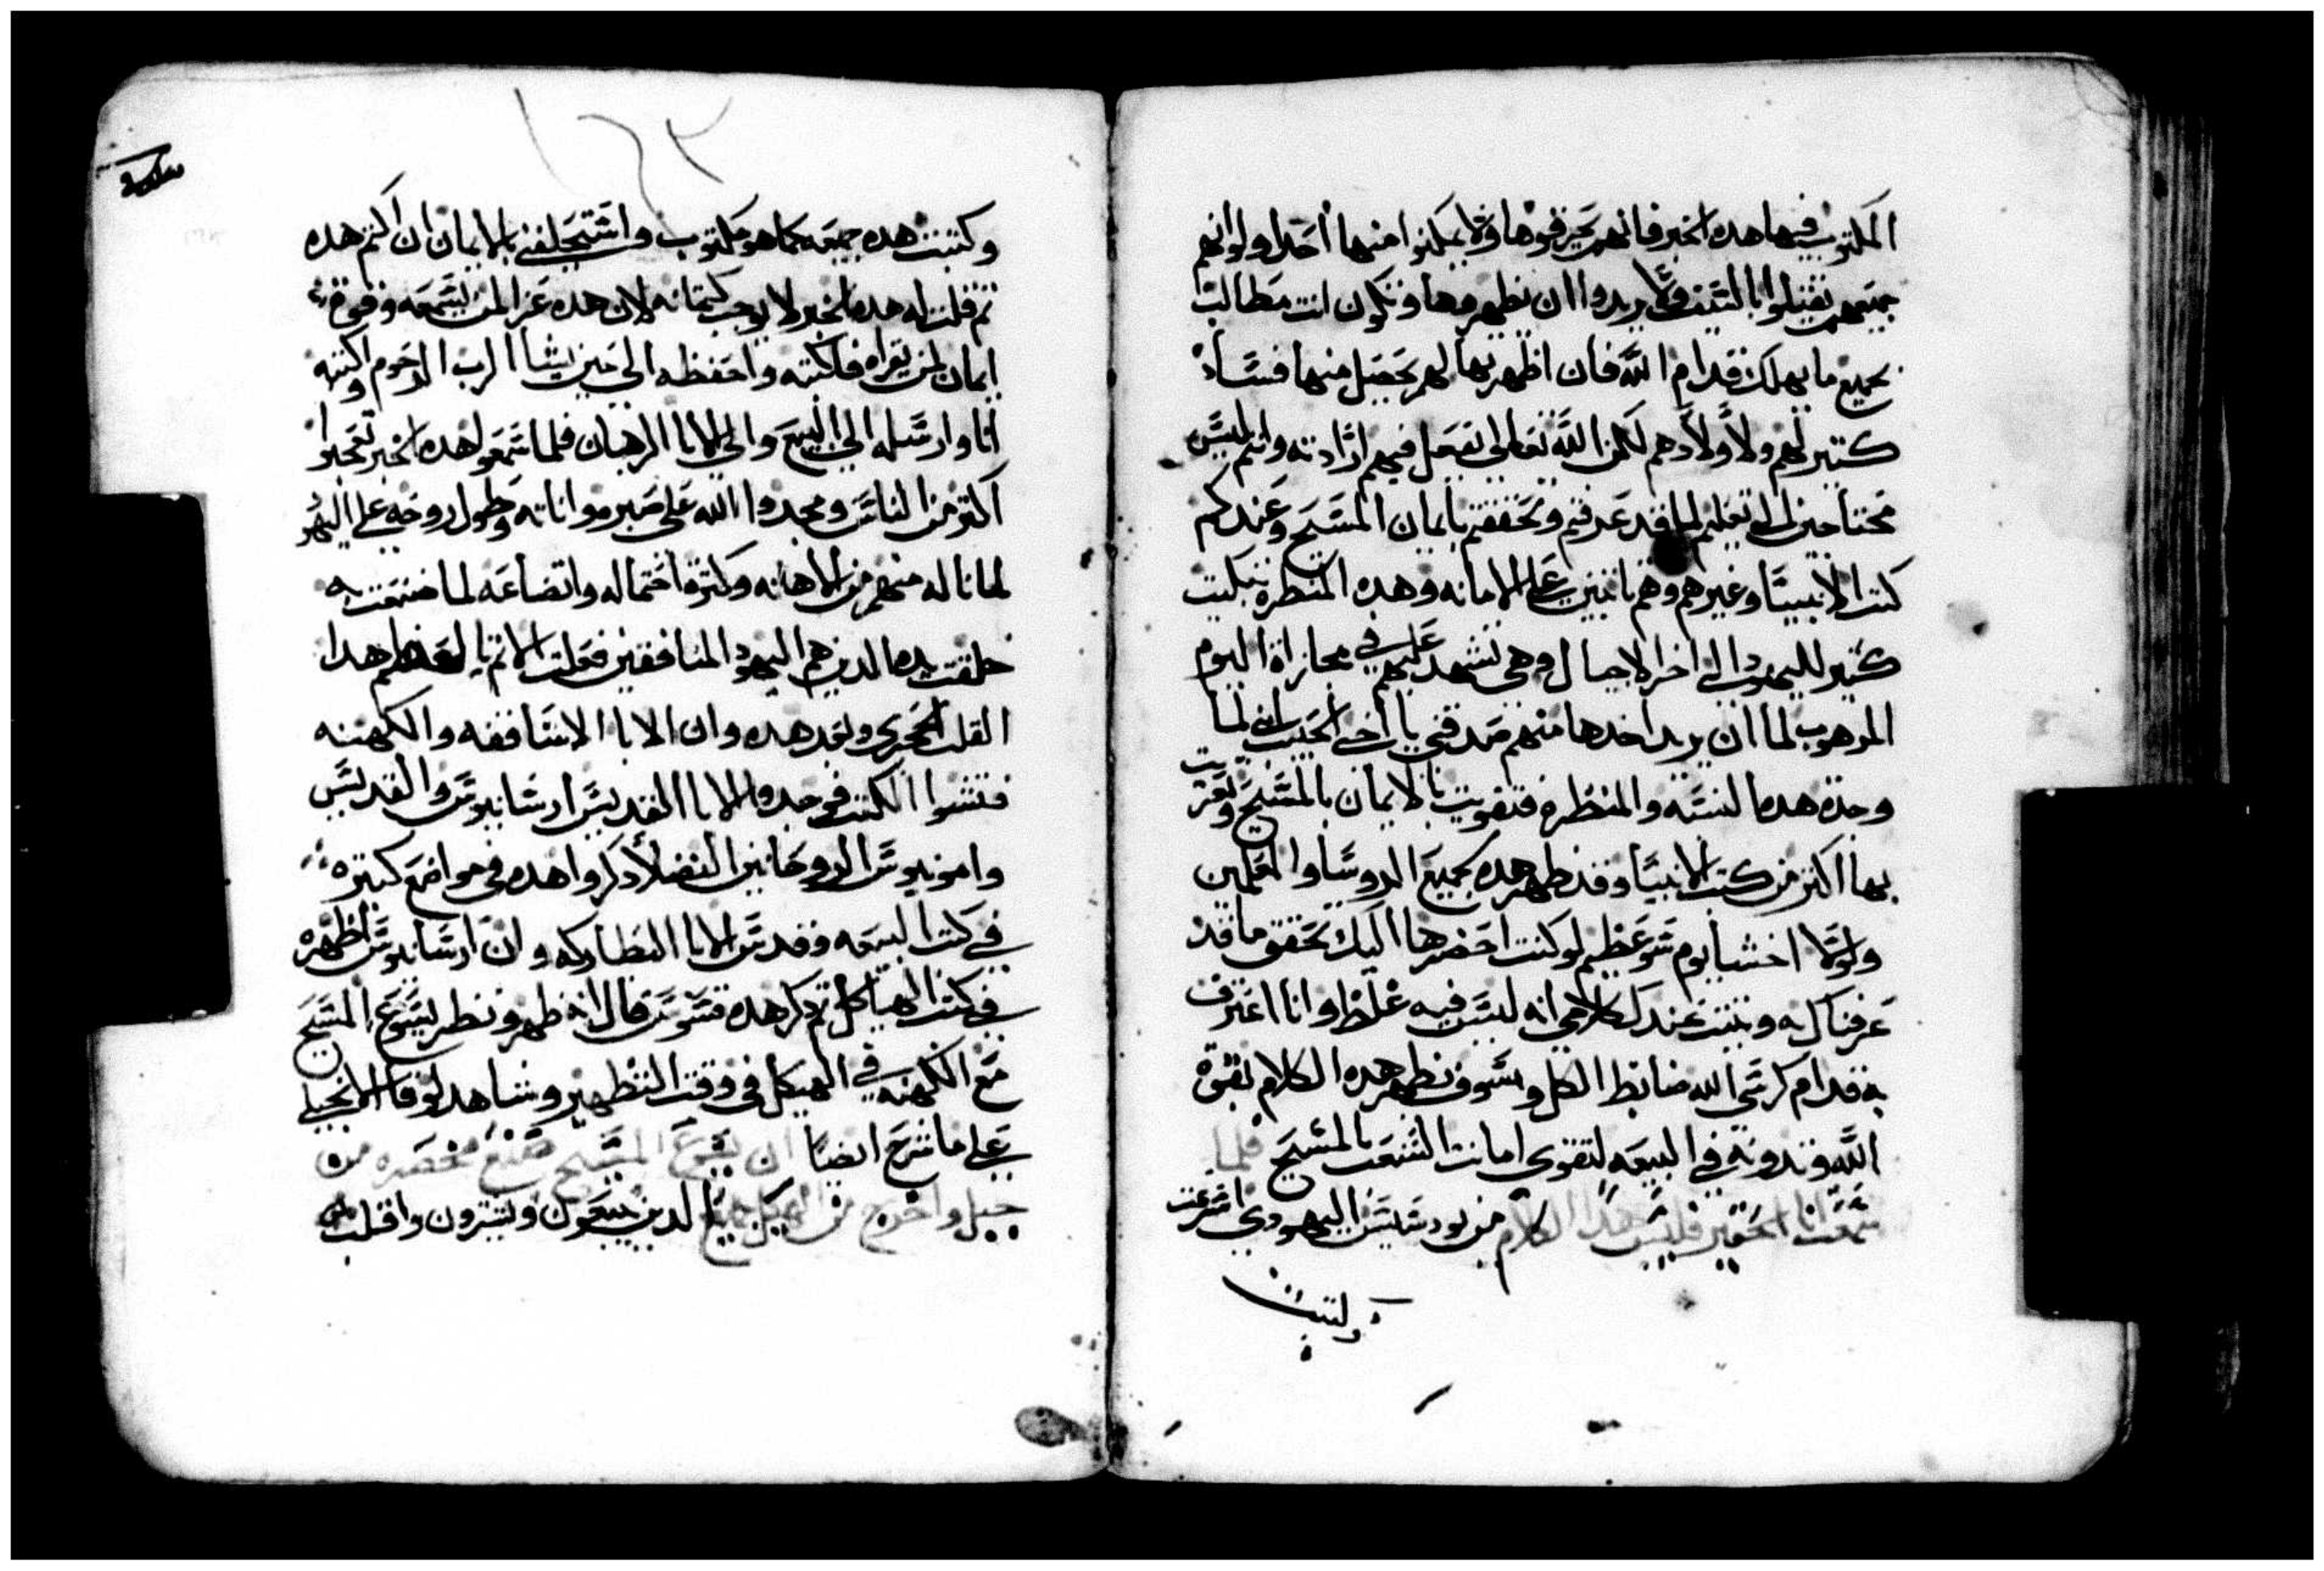 المكتوب فيها هده الخبر فانهم يحرقوها ولا يمكنوا منها احدا ولو انهم
جميعهم يقتلوا بالسيف ولا يريدوا ان يظهروها وتكون انت مطالب
بجميع ما يهلك قدام الله فان اظهرتها لهم يحصل منها فساد
كتير لهم ولاولادهم لكن الله تعالى يفعل فيهم ارادته وانتم ليس
محتاجين الى تعليم لما قد عرفتم وتحققتم بايمان المسيح وعندكم
كتب الانبيا وغيرهم وهم تابتين على الامانه وهده المنطره تبكيت
كتير لليهود الى اخر الاجيال وهى تشهد عليهم في مجازاة اليوم
المرهوب لما ان يريد اخدها منهم صدقني يا اخى الحبيب اني لما
وجدة هده النسبه والمنطره فتقويت بالايمان بالمسيح وتعزيت
بها اكتر من كتب الانبيا وقد ظهر هده بجميع الروسا والمعلمين
ولولا اخشا يوم سو عظيم لو كنت احضرها اليك تحقق ما قد
عرفناك به ويتبت عندك كلامى انه ليس فيه غلط وانا اعترف
به قدام كرسى الله ضابط الكل وسوف تظهر هده الكلام بقوة
الله وتدونه في البيعه لتقوى امانت الشعب بالمسيح فلما
سمعت انا الحقير فليبس هدا الكلام من يودسيس اليهودي اسرعت
وكتبت
وكتبت هده جميعه كما هو مكتوب واستحلفني بالايمان ان اكتم هده
تم قلت له هده الخبر لا يوجب كتمانه لان هده عزا لمن يسمعه وقوة
ايمان لمن يقراه فاكتبه واحفظه الى حين يشا الرب الرحوم وكتبته
انا وارسلته الى البيع والى الابا الرهبان فلما سمعوا هده الخبر تعجبوا
اكتر من الناس ومجدوا الله على صبره واناته وطول روحه على اليهود
لما ناله منهم من الاهانه وكترة احتماله واتضاعه لما صنعته
خلقت يده الدين هم اليهود المنافقين فولت الاتم يا لعظم هدا
القلب الحجرى وبعد هده وان الابا الاساقفه والكهنه
فتشوا الكتب فوجدوا الابا القديس ارسانيوس والقديس
وامونيوس الروحانين الفضلا دكروا هده في مواضع كتيره
في كتب البيعه وقدس الابا البطاركه وان ارسانيوس اظهره
في كتب الهياكل تم دكر هده فتوس قال انه ظهر ونطر يسوع المسيح
مع الكهنه في الهيكل في وقت التطهير وشاهد لوقا الانجيلى
على ما شرح ايضا ان يسوع المسيح صنع مخصره من
حبل واخرج من الهيكل جميع الدين يبيعون ويشترون واقلب